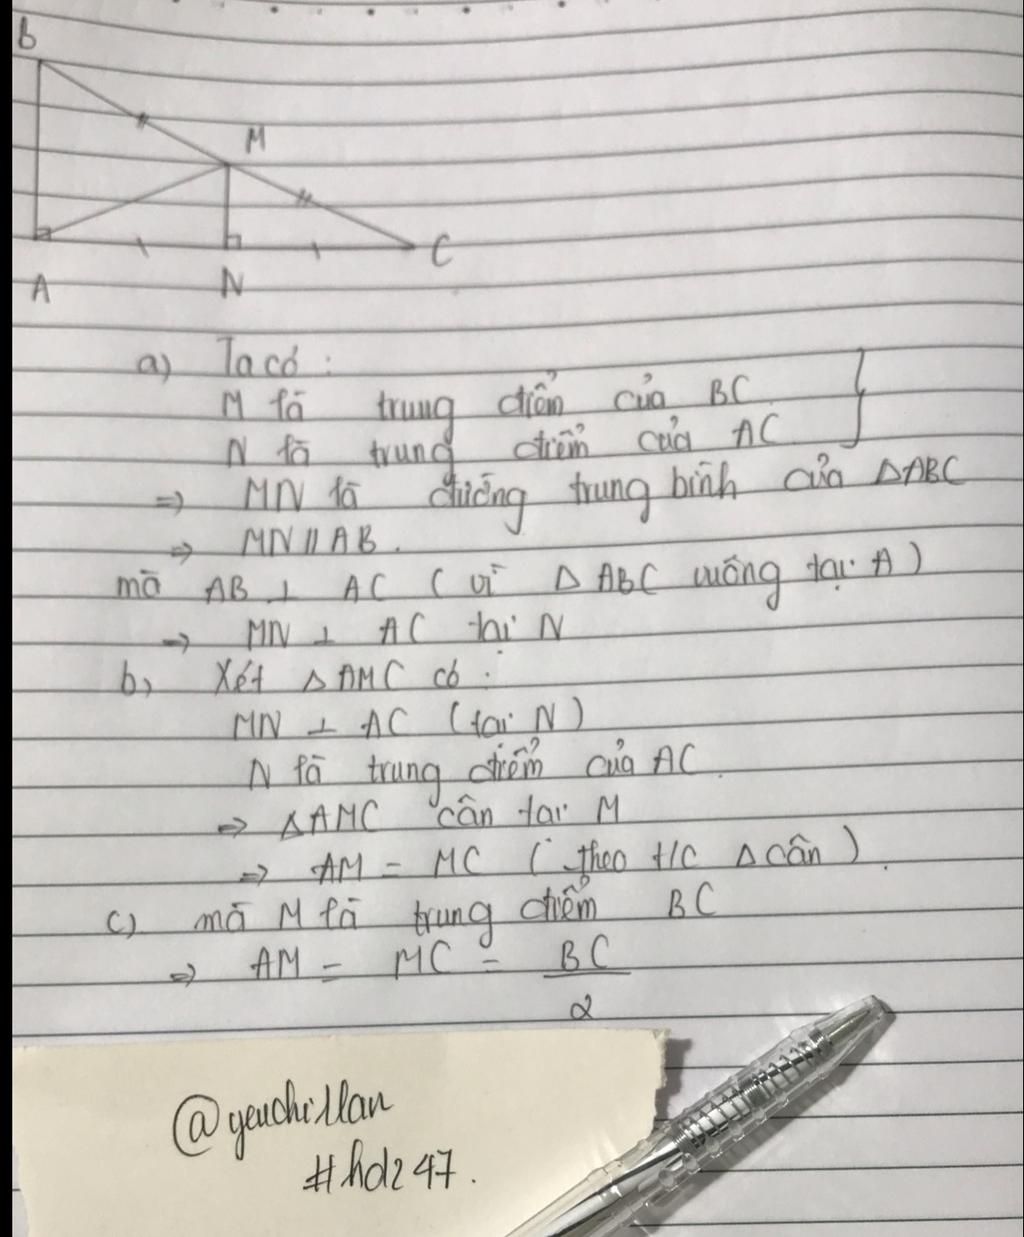 B
M
A
N
C
a) Ta có :
M là trung điểm của BC
N là trung điểm của AC
=> MN là đường trung bình của ΔABC
=> MN // AB.
mà AB ⊥ AC ( vì Δ ABC vuông tại A )
=> MN ⊥ AC tại N
b) Xét Δ AMC có :
MN ⊥ AC ( tại N )
N là trung điểm của AC.
=> ΔAMC cân tại M
=> AM = MC ( theo t/c Δ cân ).
c) mà M là trung điểm BC
=> AM = MC = BC
2
@yeuchillan
#hd247.